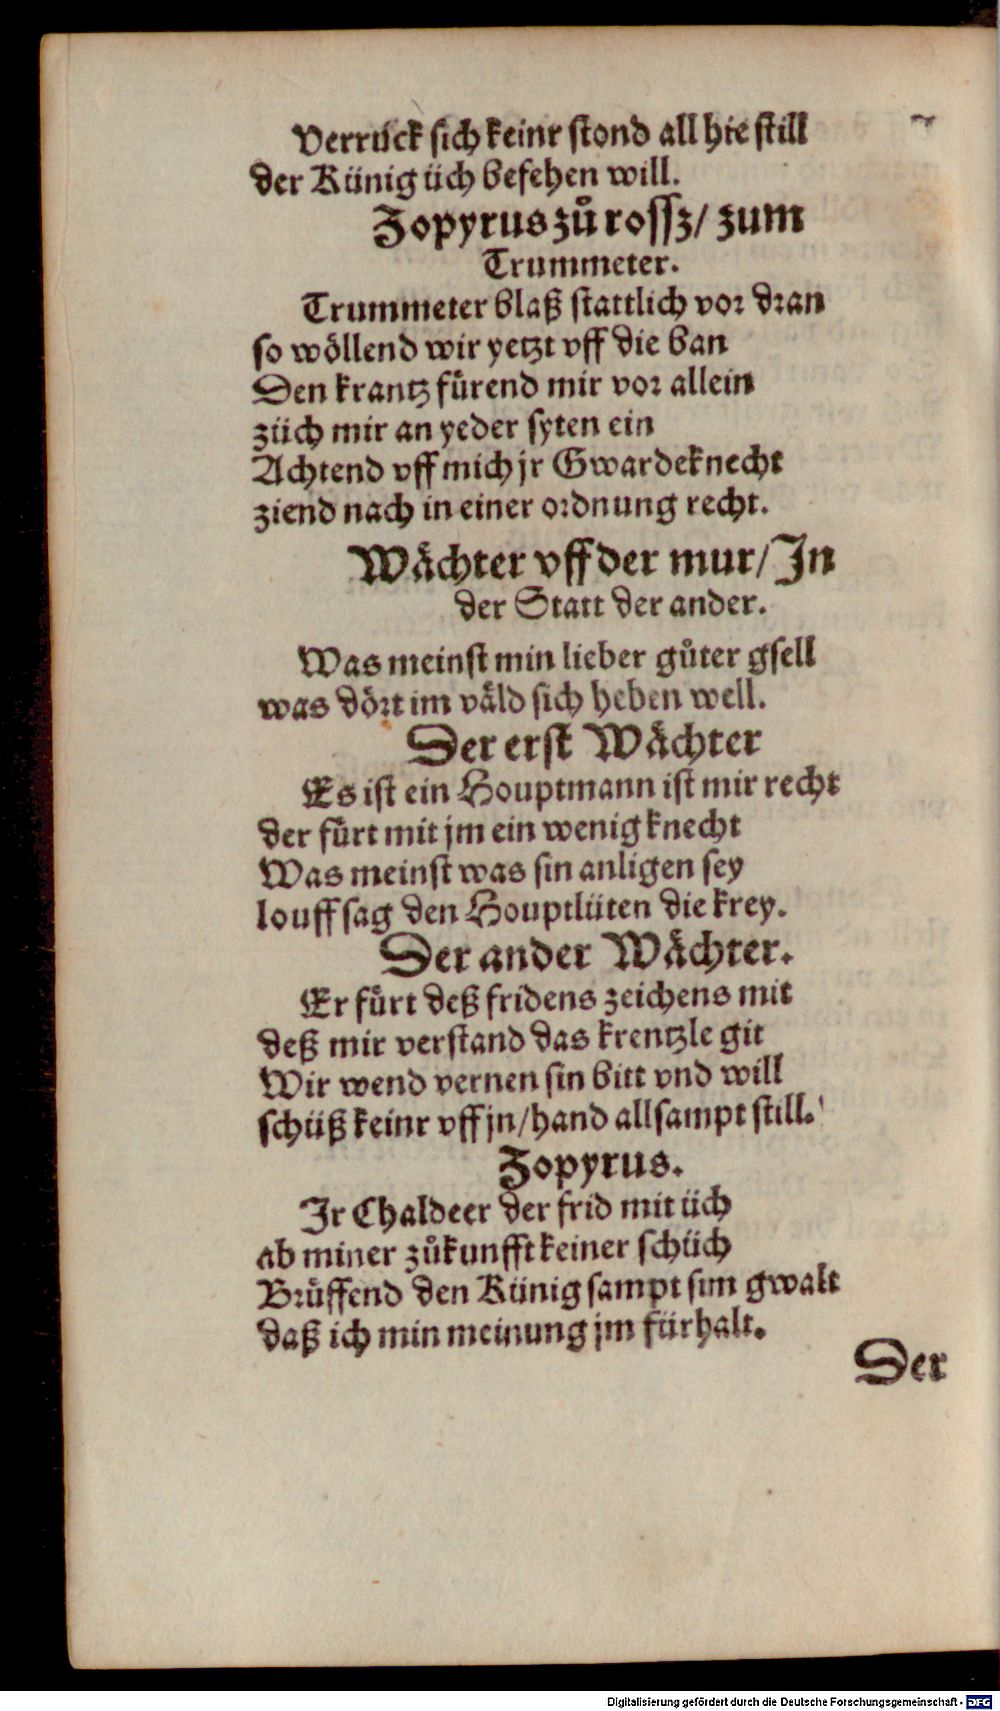 Verruck sich keinr stond all hie still
der Künig üch besehen will.
Zopyrus zuͦ rossz / zum
Trummeter.
Trummeter blaß stattlich vor dran
so wöllend wir yetzt vff die ban
Den krantz fuͤrend mir vor allein
züch mir an yeder syten ein
Achtend vff mich jr Gwardeknecht
ziend nach in einer ordnung recht.
Waͤchter vff der mur / In
der Statt der ander.
Was meinst min lieber guͦter gsell
was doͤrt im vaͤld sich heben well.
Der erst Waͤchter
Es ist ein Houptmann ist mir recht
der fuͤrt mit jm ein wenig knecht
Was meinst was sin anligen sey
louff sag den Houptlüten die krey.
Der ander Waͤchter.
Er fuͤrt deß fridens zeichens mit
deß mir verstand das krentzle git
Wir wend vernen sin bitt vnd will
schüß keinr vff jn / hand allsampt still.
Zopyrus.
Ir Chaldeer der frid mit üch
ab miner zuͦkunfft keiner schüch
Bruͤffend den Künig sampt sim gwalt
daß ich min meinung jm fürhalt.
Der
Digitalisierung gefördert durch die Deutsche Forschungsgemeinschaft - DFG